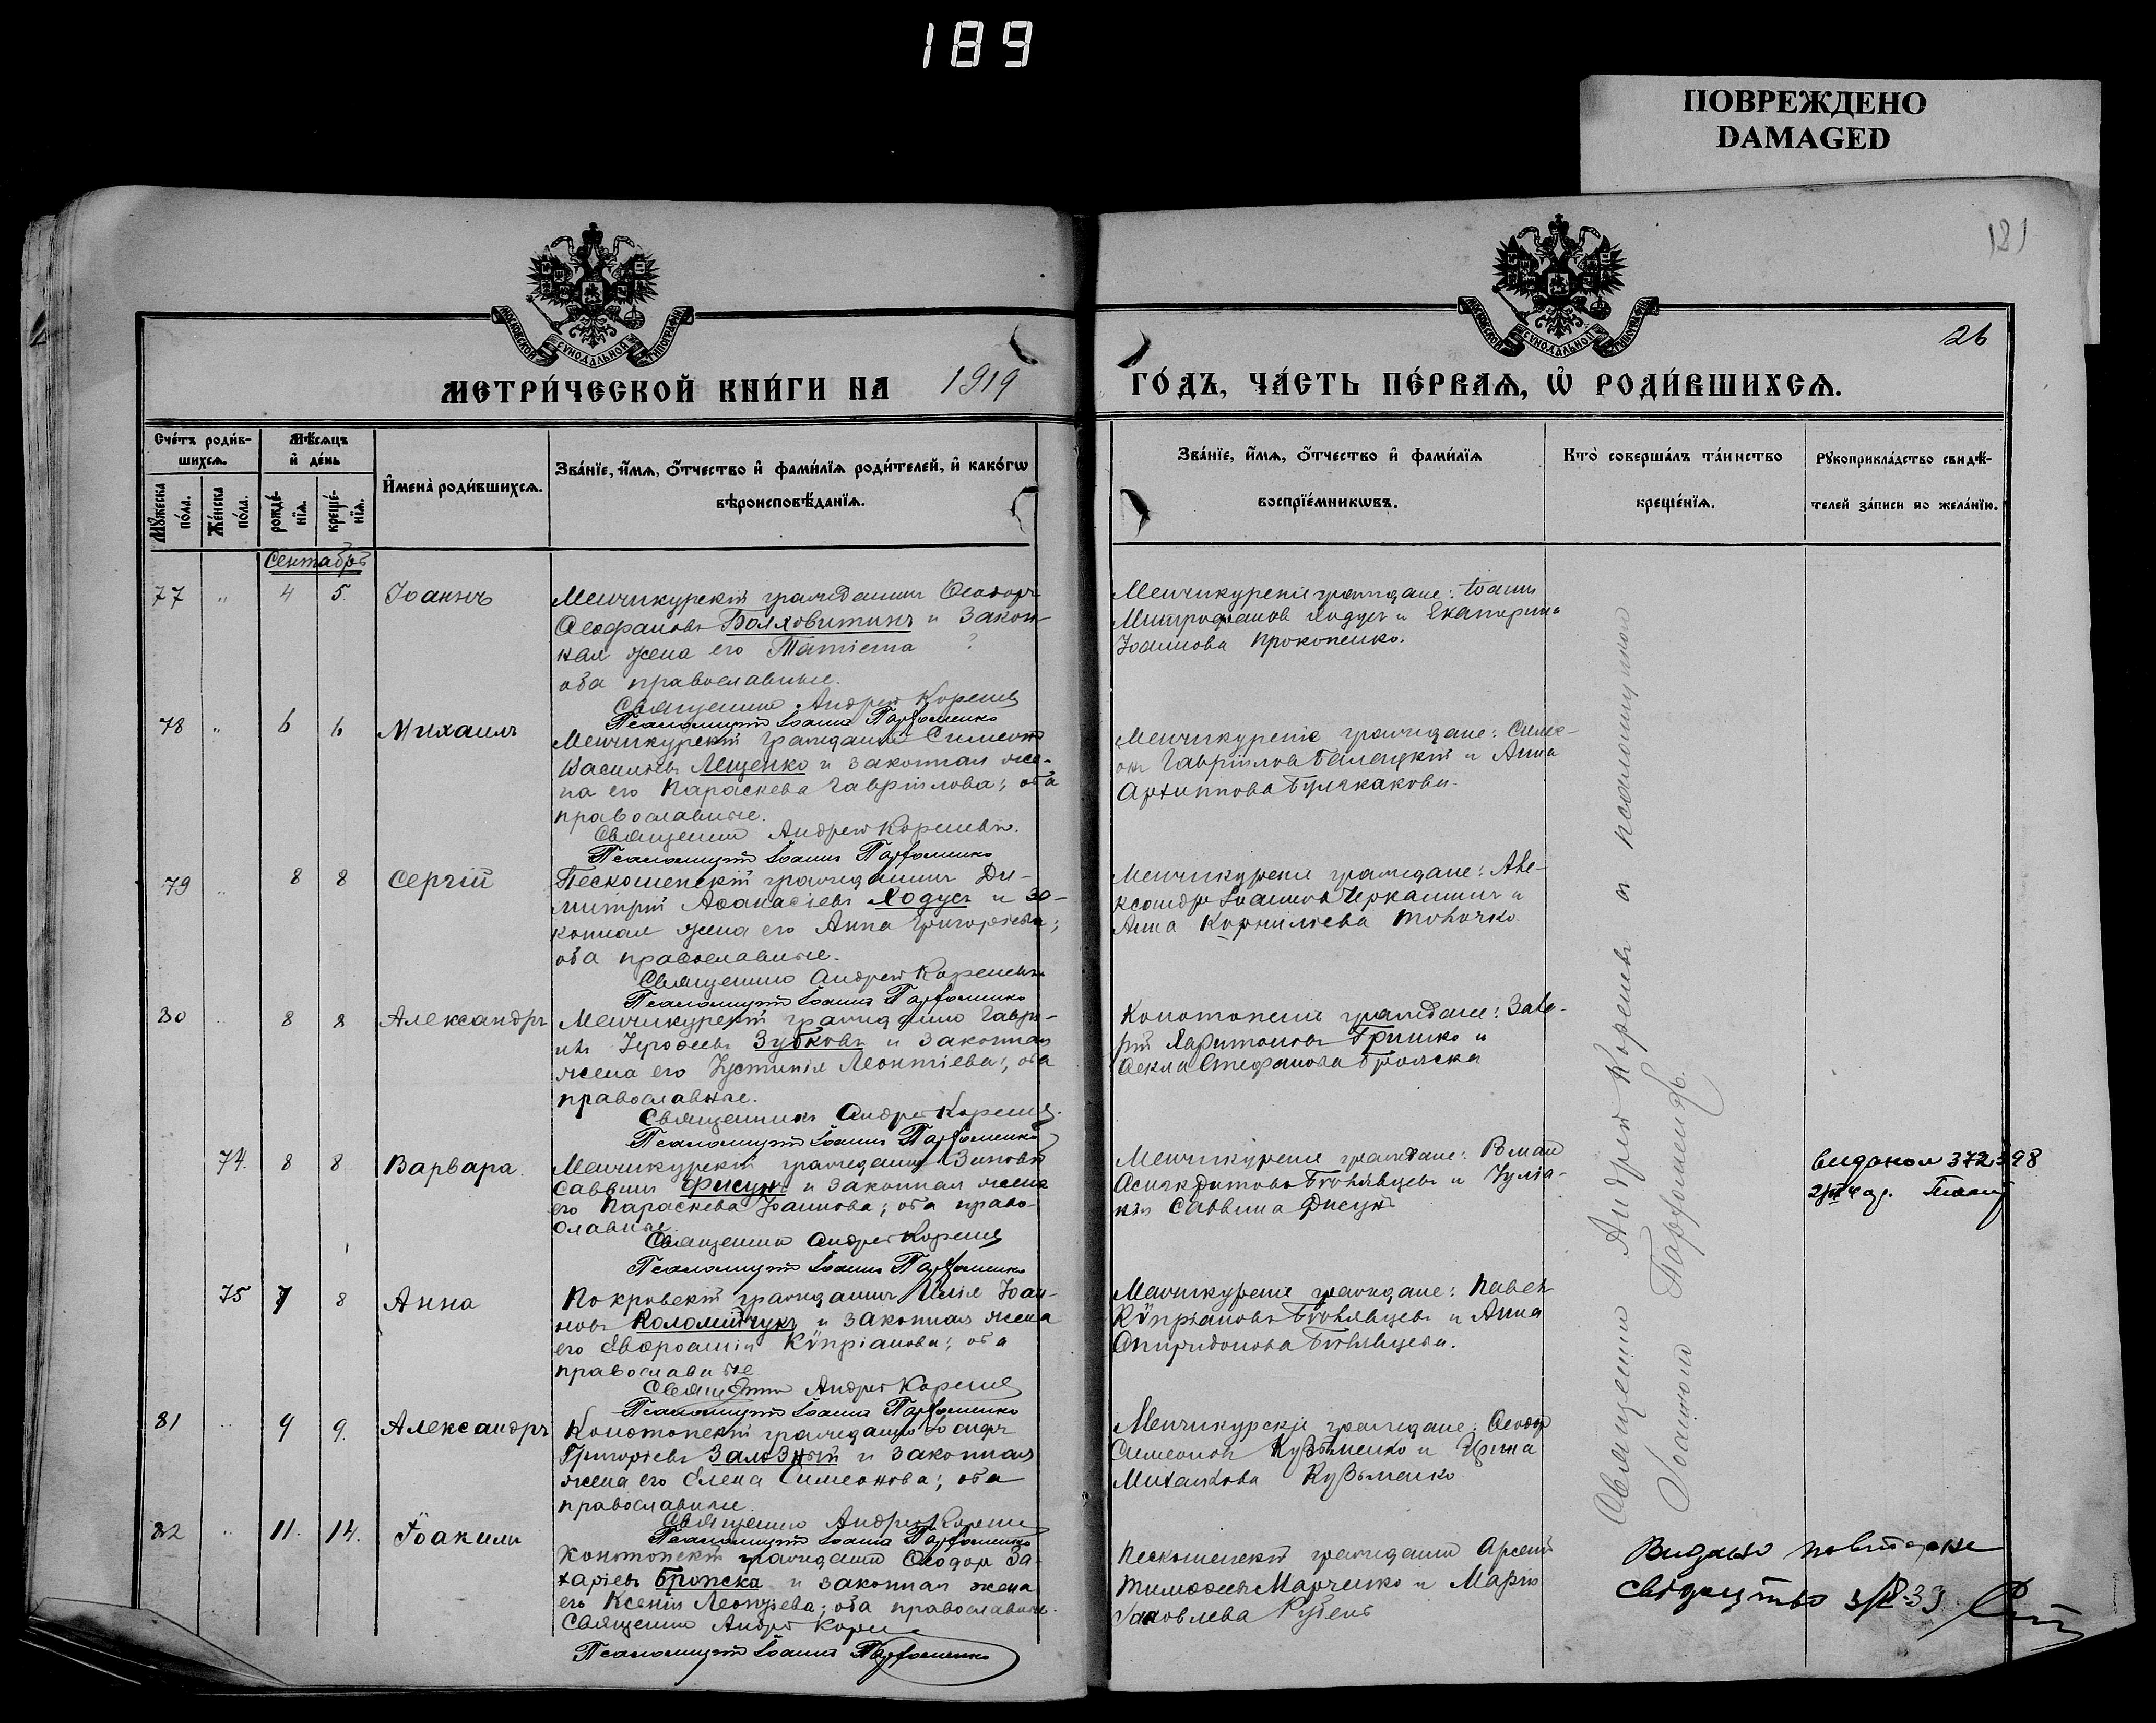 189
ПОВРЕЖДЕНО
DAMAGED
181
26
МОСКОВСКОЙ СУНОДАЛЬНОЙ ТИПОГРАФІИ
МОСКОВСКОЙ СУНОДАЛЬНОЙ ТИПОГРАФІИ
МЕТРИ́ЧЕСКОЙ КНИ́ГИ НА 1919
ГО́ДЪ, ЧА́СТЬ ПЕ́РВАѦ, Ѡ҆ РОДИ́ВШИХСѦ.
Сче́тъ роди́в-
шихсѧ.
Мѣ́сѧцъ
и҆ де́нь
Мꙋ́жеска
по́ла.
Же́нска
по́ла.
рожде́-
нїѧ.
креще́-
нїѧ.
И҆мена̀ роди́вшихсѧ.
Зва́нїе, и҆́мѧ, ѻ҆́тчество и҆ фами́лїѧ роди́телей, и҆ како́гѡ
вѣроисповѣ́данїѧ.
Зва́нїе, и҆́мѧ, ѻ҆́тчество и҆ фами́лїѧ
воспрїе́мникѡвъ.
Кто̀ соверша́лъ та́инство
креще́нїѧ.
Рꙋкоприкла́дство свидѣ́-
телей за́писи по жела́нїю.
Сентябрь
77 " 4 5. Іоаннъ
Менчикурскій гражданинъ Ѳеодоръ
Ѳеофановъ Болховитинъ и закон-
ная жена его Татіана ?
оба православные.
Священникъ Андрей Кореневъ
Псаломщикъ Іоаннъ Парфоменко
Менчикурскіе граждане: Іоаннъ
Митрофановъ Ходусъ и Екатерина
Іоаннова Прокопенко.
78 " 6 6 Михаилъ
Менчикурскій гражданинъ Симеонъ
Васильевъ Лещенко и законная же-
на его Параскева Гавріилова; оба
православные.
Священникъ Андрей Кореневъ.
Псаломщикъ Іоаннъ Парфоменко
Менчикурскіе граждане: Симе-
онъ Гавріиловъ Балацкій и Анна
Архиппова
79 " 8 8 Сергій
Пескошенскій гражданинъ Ди-
митрій Аѳанасіевъ Ходусъ и за-
конная жена его Анна Григоріева;
оба православные.
Священникъ Андрей Кореневъ
Псаломщикъ Іоаннъ Парфоменко
Менчикурскіе граждане: Але-
ксандръ Іоанновъ Черкашинъ и
Анна Корнильева
80 " 8 8 Александръ
Менчикурскій гражданинъ Гаврі-
илъ Іероѳеевъ Зубковъ и законная
жена его Іустинія Леонтіева; оба
православные.
Священникъ Андрей Кореневъ.
Псаломщикъ Іоаннъ Парфоменко
Конотопскіе граждане:
Харитоновъ Гришко и
Ѳекла Стефанова
74. 8 8 Варвара.
Менчикурскій гражданинъ Зиновій
Саввинъ Фисунъ и законная жена
его Параскева Іоаннова; оба право-
славные.
Священникъ Андрей Кореневъ
Псаломщикъ Іоаннъ Парфоменко
Менчикурскіе граждане: Романъ
и Іуліа-
нія Саввина Фисунъ
75 7 8 Анна
Покровскій гражданинъ Илія Іоан-
новъ Коломійчукъ и законная жена
его Евфросинія Кѵпріанова; оба
православные
Священникъ Андрей Кореневъ
Псаломщикъ Іоаннъ Парфоменко
Менчикурскіе граждане: Павелъ
Кѵпріановъ и Анна
Спиридонова
81 " 9 9. Александръ
Конотопскій гражданинъ
Григорьевъ Зализный и законная
жена его Елена Симеонова; оба
православные.
Священникъ Андрей Кореневъ
Псаломщикъ Іоаннъ Парфоменко
Менчикурскіе граждане: Ѳеодоръ
Симеоновъ Кузьменко и Ирина
Михаилова Кузьменко
82 " 11. 14. Іоакимъ
Конотопскій гражданинъ Ѳеодоръ За-
харіевъ и законная жена
его Ксенія; оба православные.
Священникъ Андрей Кореневъ
Псаломщикъ Іоаннъ Парфоменко
Пескошенскій гражданинъ Арсеній
Тимоѳеевъ Марченко и Марія
Яковлева Рубенъ
Священникъ Андрей Кореневъ и псаломщикъ
Іоанномъ Парфоменко.
Видано повторне
свідоцтво